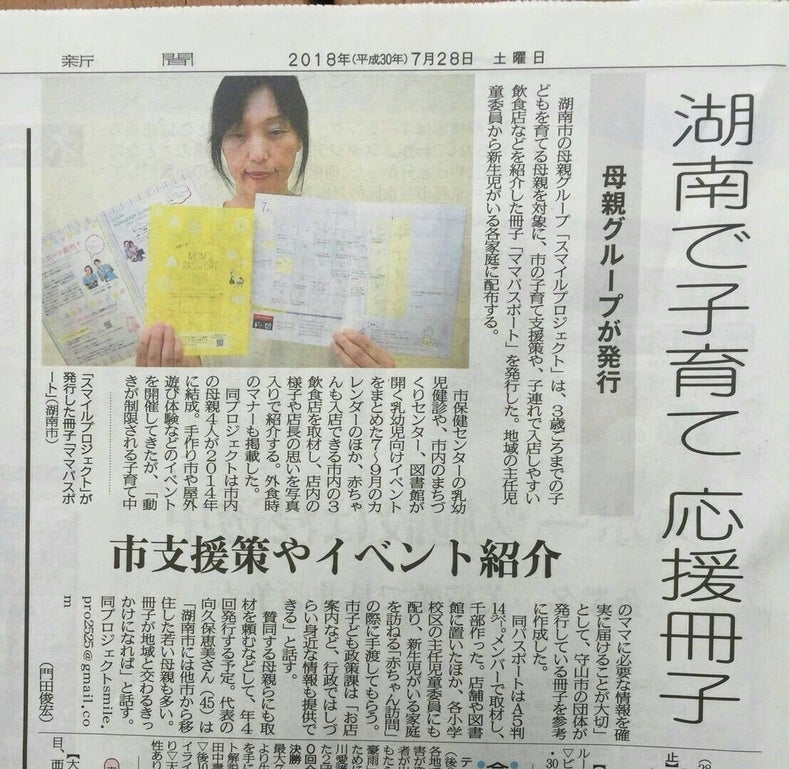 新聞
2018年(平成30年)7月28日 土曜日
湖南で子育て 応援冊子
母親グループが発行
湖南市の母親グループ「スマイルプロジェクト」は、3歳ごろまでの子
どもを育てる母親を対象に、市の子育て支援策や、子連れで入店しやすい
飲食店などを紹介した冊子「ママパスポート」を発行した。地域の主任児
童委員から新生児がいる各家庭に配布する。
MOM
PASSPORT
7
「スマイルプロジェクト」が
発行した冊子「ママパスポ
ート」(湖南市)
市保健センターの乳幼
児健診や、市内のまちづ
くりセンター、図書館が
開く乳幼児向けイベント
をまとめた7~9月のカ
レンダーのほか、赤ちゃ
んも入店できる市内の3
飲食店を取材し、店内の
様子や店長の思いを写真
入りで紹介する。外食時
のマナーも掲載した。
同プロジェクトは市内
の母親4人が2014年
に結成。手作り市や屋外
遊び体験などのイベント
を開催してきたが、「動
きが制限される子育て中
市支援策やイベント紹介
のママに必要な情報を確
実に届けることが大切」
として、守山市の団体が
発行している冊子を参考
に作成した。
同パスポートはA5判
14㌻。メンバーで取材し、
千部作った。店舗や図書
館に置いたほか、各小学
校区の主任児童委員にも
配り、新生児がいる家庭
を訪ねる「赤ちゃん訪問」
の際に手渡してもらう。
市子ども政策課は「お店
案内など、行政ではしづ
らい身近な情報も提供で
きる」と話す。
賛同する母親らにも取
材を頼むなどして、年4
回発行する予定。代表の
向久保恵美さん(45)は
「湖南市には他市から移
住した若い母親も多い。
冊子が地域と交わるきっ
かけになれば」と話す。
同プロジェクトsmile.
pro2525@gmail.co
m
(門田俊宏)